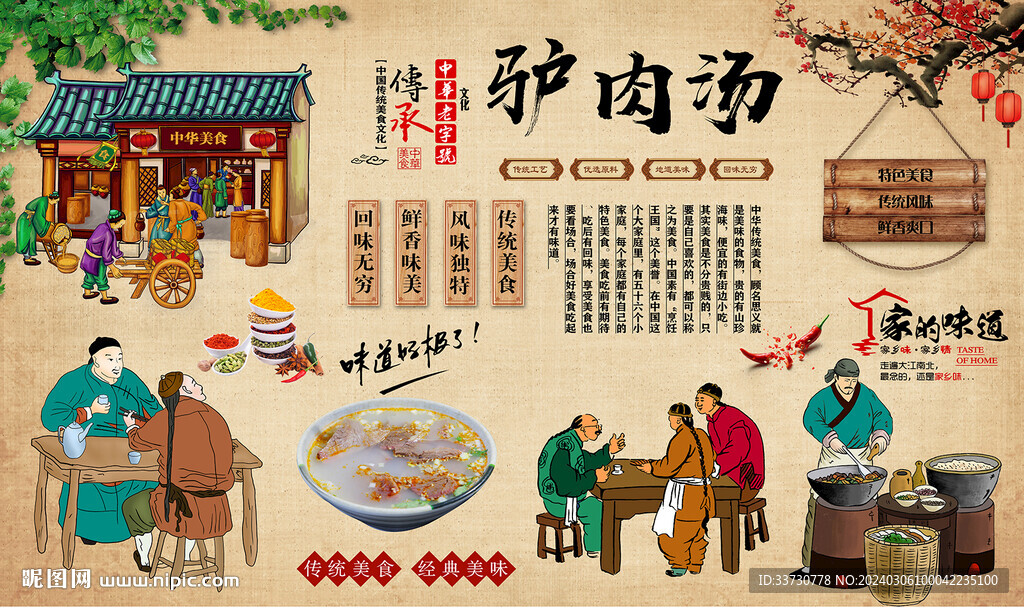 驴肉汤
文化
中华老字號
傳承
【中国传统美食文化】
中華美食
中华美食
传统工艺
优选原料
地道美味
回味无穷
特色美食
传统风味
鲜香爽口
传统美食
风味独特
鲜香味美
回味无穷
中华传统美食，顾名思义就
是美味的食物，贵的有山珍
海味，便宜的有街边小吃。
其实美食是不分贵贱的，只
要是自己喜欢的，都可以称
之为美食。中国素有“烹饪
王国”这个美誉。在中国这
个大家庭里，有五十六个小
家庭，每个家庭都有自己的
特色美食。美食吃前有期待
、吃后有回味，享受美食也
要看场合，场合好美食吃起
来才有味道。
味道好极了!
家的味道
家乡味·家乡情
TASTE
OF HOME
走遍大江南北，
最念的，还是家乡味...
传统美食
经典美味
昵图网 www.nipic.com
ID:33730778 NO:20240306100042235100